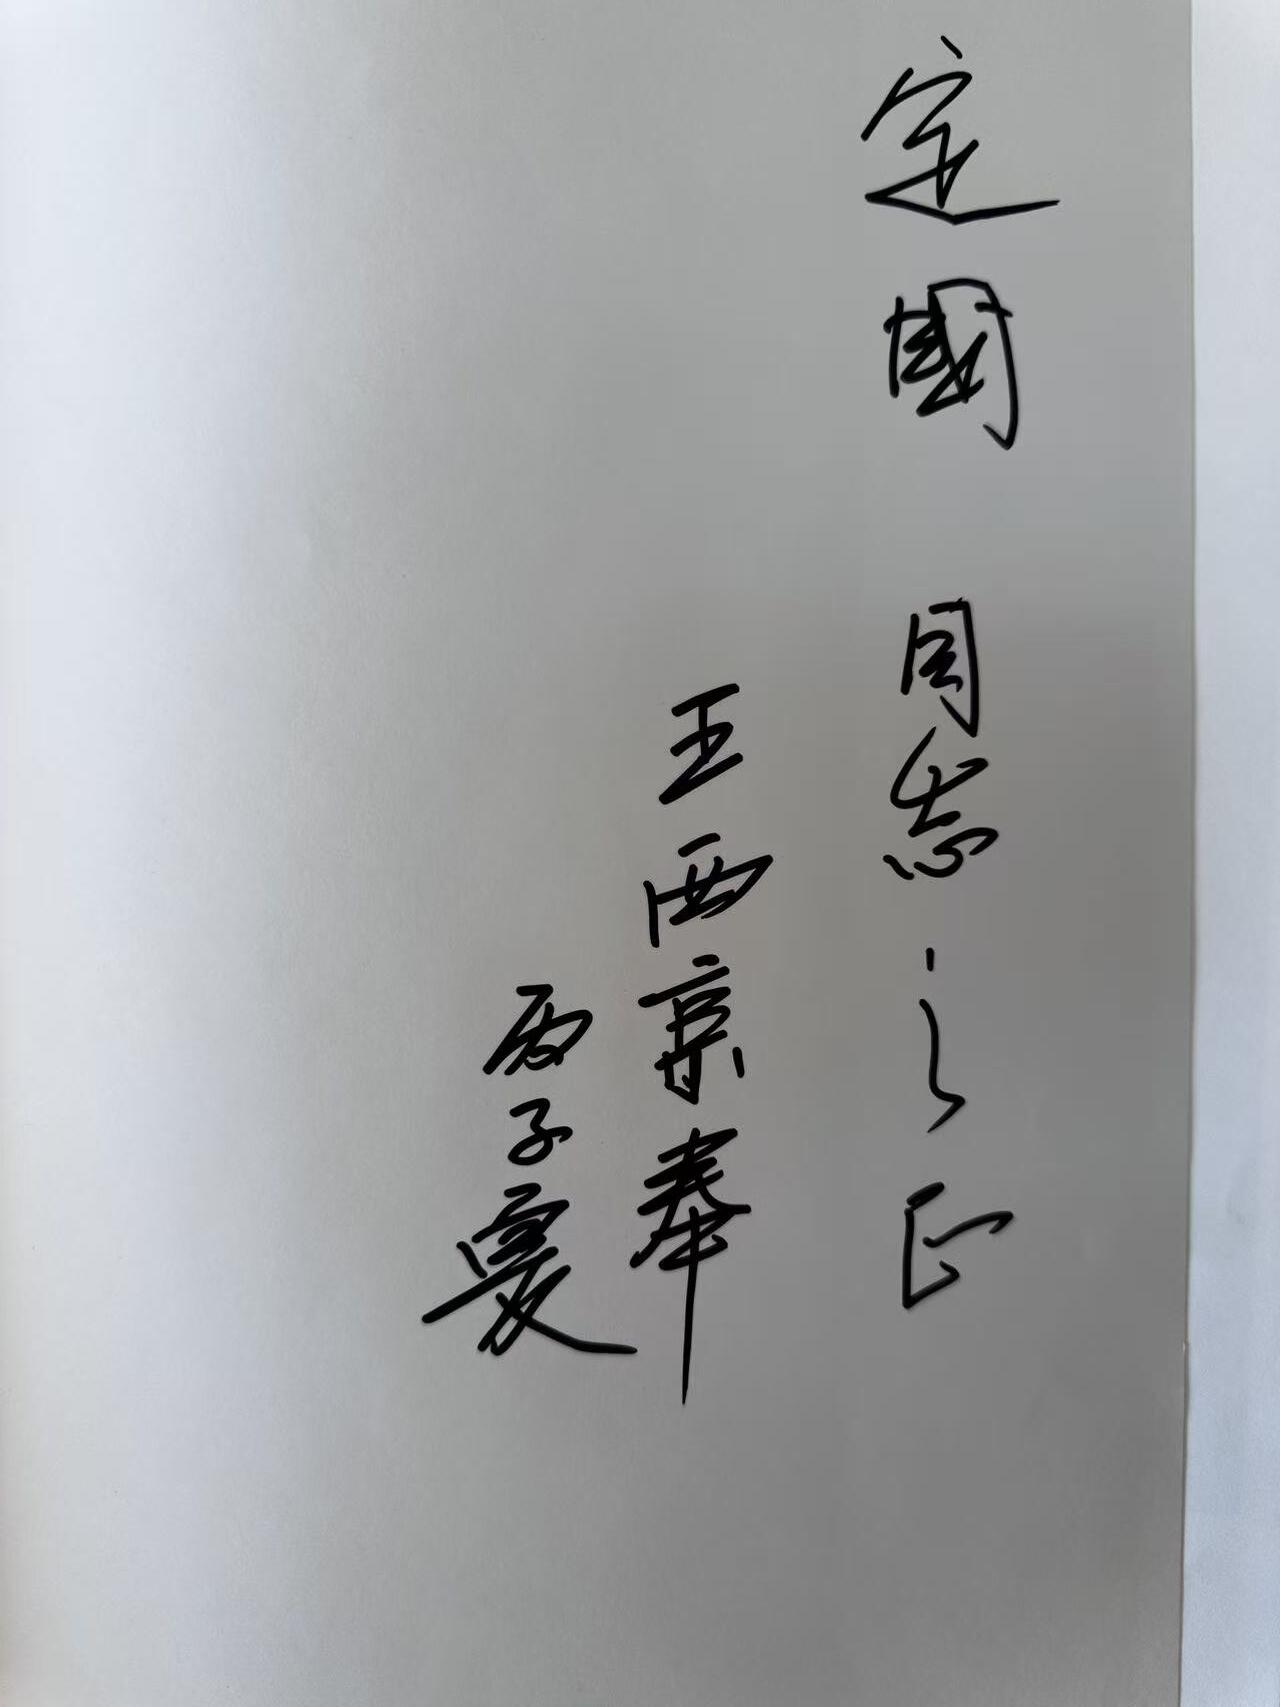 定國 同志之正
王西京奉
丙子夏